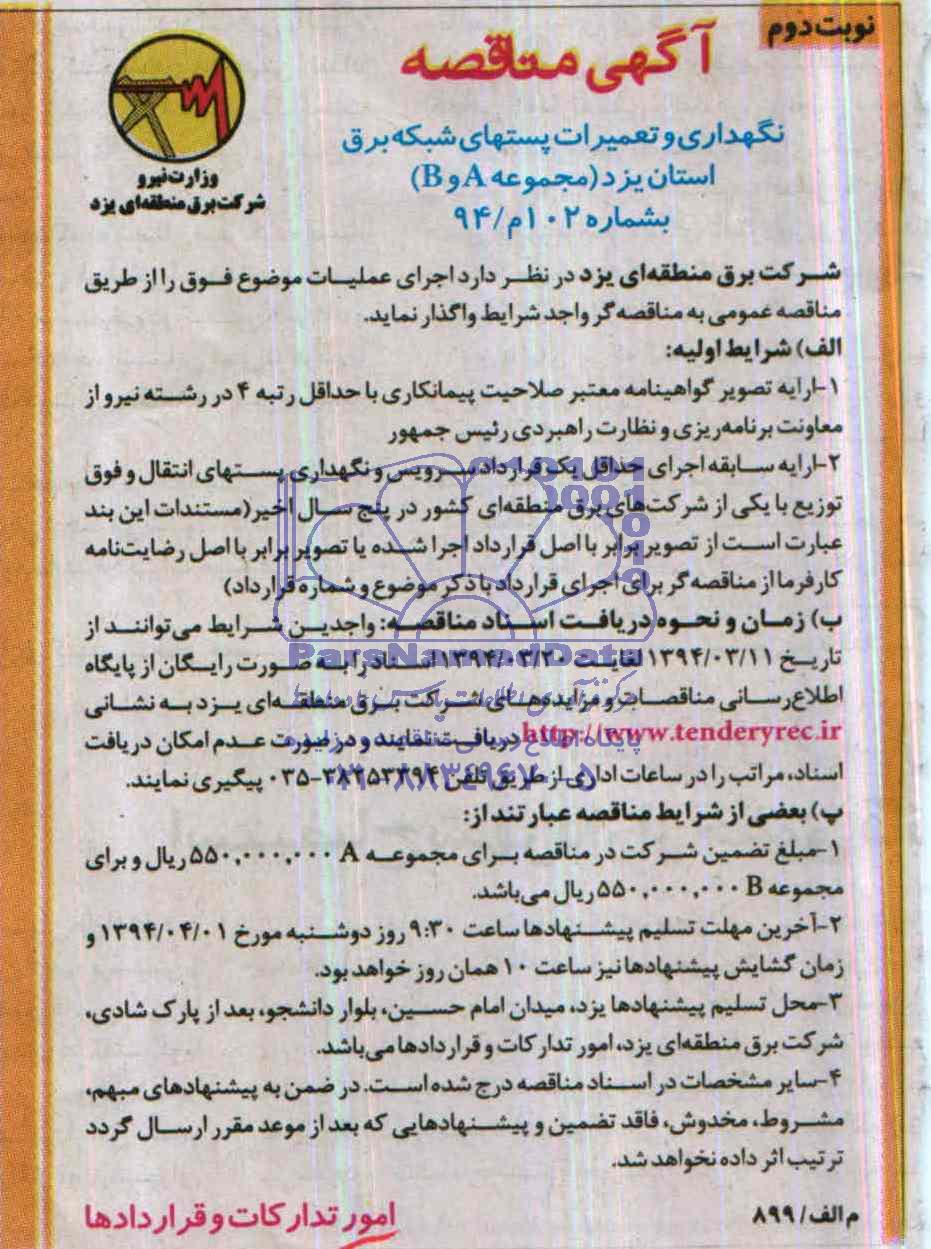 نوبت دوم
آگهی مناقصه
نگهداری و تعمیرات پستهای شبکه برق
استان یزد (مجموعه A و B)
بشماره ۱۰۲م/۹۴
وزارت نیرو
شرکت برق منطقه‌ای یزد
شرکت برق منطقه‌ای یزد در نظر دارد اجرای عملیات موضوع فوق را از طریق
مناقصه عمومی به مناقصه‌گر واجد شرایط واگذار نماید.
الف) شرایط اولیه:
۱-ارایه تصویر گواهینامه معتبر صلاحیت پیمانکاری با حداقل رتبه ۴ در رشته نیرو از
معاونت برنامه‌ریزی و نظارت راهبردی رئیس جمهور
۲-ارایه سابقه اجرای حداقل یک قرارداد سرویس و نگهداری پستهای انتقال و فوق
توزیع با یکی از شرکت‌های برق منطقه‌ای کشور در پنج سال اخیر (مستندات این بند
عبارت است از تصویر برابر با اصل قرارداد اجرا شده یا تصویر برابر با اصل رضایت‌نامه
کارفرما از مناقصه‌گر برای اجرای قرارداد با ذکر موضوع و شماره قرارداد)
ب) زمان و نحوه دریافت اسناد مناقصه: واجدین شرایط می‌توانند از
تاریخ ۱۳۹۴/۰۳/۱۱ لغایت ۱۳۹۴/۰۳/۲۰ اسناد را به صورت رایگان از پایگاه
اطلاع‌رسانی مناقصات و مزایده‌های شرکت برق منطقه‌ای یزد به نشانی
http://www.tenderyrec.ir دریافت نمایند و در صورت عدم امکان دریافت
اسناد، مراتب را در ساعات اداری از طریق تلفن ۳۸۲۵۳۳۹۴-۰۳۵ پیگیری نمایند.
پ) بعضی از شرایط مناقصه عبارتند از:
۱-مبلغ تضمین شرکت در مناقصه برای مجموعه A ۵۵۰,۰۰۰,۰۰۰ ریال و برای
مجموعه B ۵۵۰,۰۰۰,۰۰۰ ریال می‌باشد.
۲-آخرین مهلت تسلیم پیشنهادها ساعت ۹:۳۰ روز دوشنبه مورخ ۱۳۹۴/۰۴/۰۱ و
زمان گشایش پیشنهادها نیز ساعت ۱۰ همان روز خواهد بود.
۳-محل تسلیم پیشنهادها یزد، میدان امام حسین، بلوار دانشجو، بعد از پارک شادی،
شرکت برق منطقه‌ای یزد، امور تدارکات و قراردادها می‌باشد.
۴-سایر مشخصات در اسناد مناقصه درج شده است. در ضمن به پیشنهادهای مبهم،
مشروط، مخدوش، فاقد تضمین و پیشنهادهایی که بعد از موعد مقرر ارسال گردد
ترتیب اثر داده نخواهد شد.
م الف/۸۹۹
امور تدارکات و قراردادها
ParsNamadData